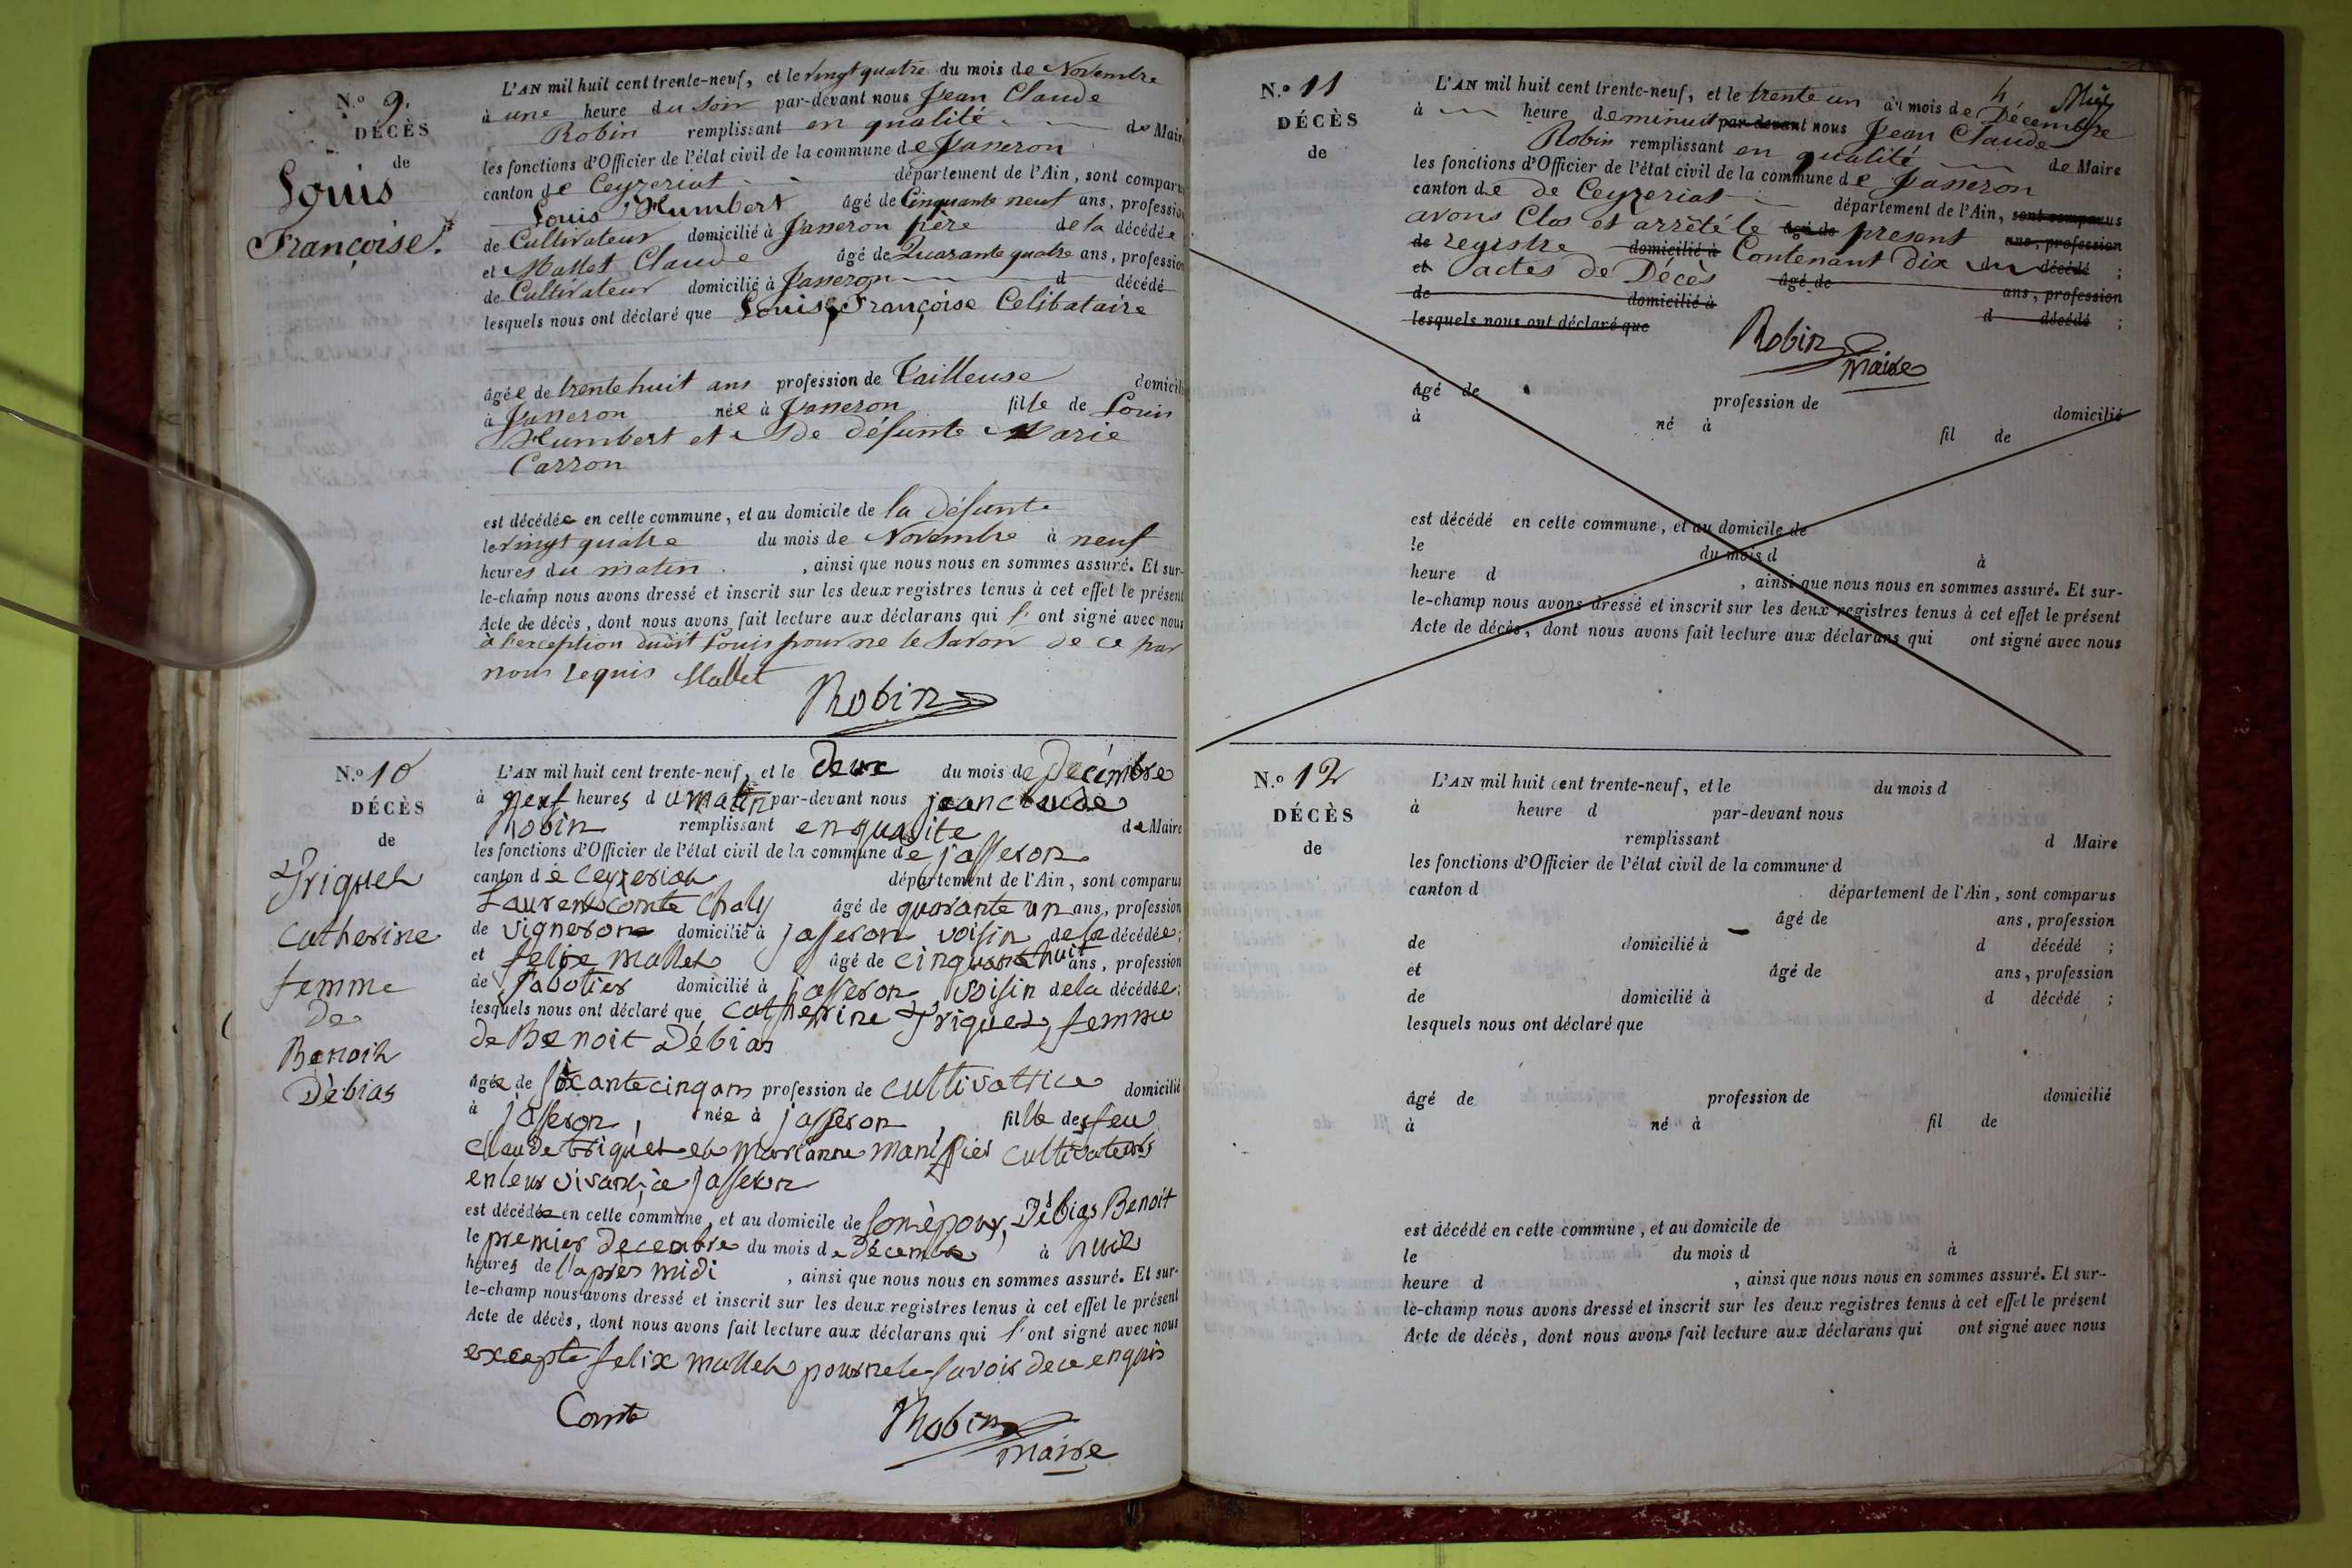 N.o 9.
DÉCÈS
de
Louis
Françoise.
L'AN mil huit cent trente-neuf, et le vingt quatre du mois de Novembre
à une heure du soir par-devant nous Jean Claude
Robin remplissant en qualité de Maire
les fonctions d'Officier de l'état civil de la commune de Jasseron
canton de Ceyzeriat département de l'Ain, sont comparus
Louis Humbert âgé de Cinquante neuf ans, profession
de Cultivateur domicilié à Jasseron père de la décédée
et Mallet Claude âgé de Quarante quatre ans, profession
de Cultivateur domicilié à Jasseron d décédé
lesquels nous ont déclaré que Louis, Françoise Celibataire
âgée de trente huit ans profession de Tailleuse domicili
à Jasseron née à Jasseron fille de Louis
Humbert et de défunte Marie
Carron
est décédée en cette commune, et au domicile de la défunte
le vingt quatre du mois de Novembre à neuf
heures du matin. , ainsi que nous nous en sommes assuré. Et sur-
le-champ nous avons dressé et inscrit sur les deux registres tenus à cet effet le présent
Acte de décès, dont nous avons fait lecture aux déclarans qui l' ont signé avec nous
à l'exception dudit Louis pour ne le savoir de ce par
nous requis Mallet
Robin
N.o 10
DÉCÈS
de
triquet
Catherine
femme
de
Benoit
Débias
L'AN mil huit cent trente-neuf, et le deux du mois de Décembre
à neuf heures d u matin par-devant nous jean claude
Robin remplissant en qualite de Maire
les fonctions d'Officier de l'état civil de la commune de jasseron
canton de ceyzeriat département de l'Ain, sont comparus
Laurent comte Chaly âgé de quarante un ans, profession
de vigneron domicilié à jasseron voisin de la décédée;
et felix mallet âgé de cinquante huit ans, profession
de sabotier domicilié à jasseron voisin de la décédée;
lesquels nous ont déclaré que catherine triquet, femme
de Benoit Débias
âgée de soixante cinq ans profession de cultivatrice domicilié
à jasseron, née à jasseron, fille des feu
claude triquet et marianne manissier cultivateurs
en leur vivant, à jasseron
est décédée en cette commune, et au domicile de son èpoux, Débias Benoit
le premier decembre du mois de décembre à huit
heures de l'après midi , ainsi que nous nous en sommes assuré. Et sur-
le-champ nous avons dressé et inscrit sur les deux registres tenus à cet effet le présent
Acte de décès, dont nous avons fait lecture aux déclarans qui l' ont signé avec nous
excepté felix mallet pour ne le savoir de ce enquis
Comte Robin
maire
N.o 11
DÉCÈS
de
L'AN mil huit cent trente-neuf, et le trente un du mois de Décembre
à heure de minuit par-devant nous Jean Claude
Robin remplissant en qualité de Maire
les fonctions d'Officier de l'état civil de la commune de Jasseron
canton de de Ceyzeriat département de l'Ain, sont comparus
avons Clos et arrêté le âgé de present ans, profession
de registre domicilié à Contenant dix du décédé ;
et actes de Décès âgé de ans, profession
de domicilié à d décédé ;
lesquels nous ont déclaré que
Robin
maire
âgé de profession de domicilié
à né à fil de
est décédé en cette commune, et au domicile de
le du mois d à
heure d , ainsi que nous nous en sommes assuré. Et sur-
le-champ nous avons dressé et inscrit sur les deux registres tenus à cet effet le présent
Acte de décès, dont nous avons fait lecture aux déclarans qui ont signé avec nous
N.o 12
DÉCÈS
de
L'AN mil huit cent trente-neuf, et le du mois d
à heure d par-devant nous
remplissant d Maire
les fonctions d'Officier de l'état civil de la commune d
canton d département de l'Ain, sont comparus
âgé de ans, profession
de domicilié à d décédé ;
et âgé de ans, profession
de domicilié à d décédé ;
lesquels nous ont déclaré que
âgé de profession de domicilié
à né à fil de
est décédé en cette commune, et au domicile de
le du mois d à
heure d , ainsi que nous nous en sommes assuré. Et sur-
le-champ nous avons dressé et inscrit sur les deux registres tenus à cet effet le présent
Acte de décès, dont nous avons fait lecture aux déclarans qui ont signé avec nous